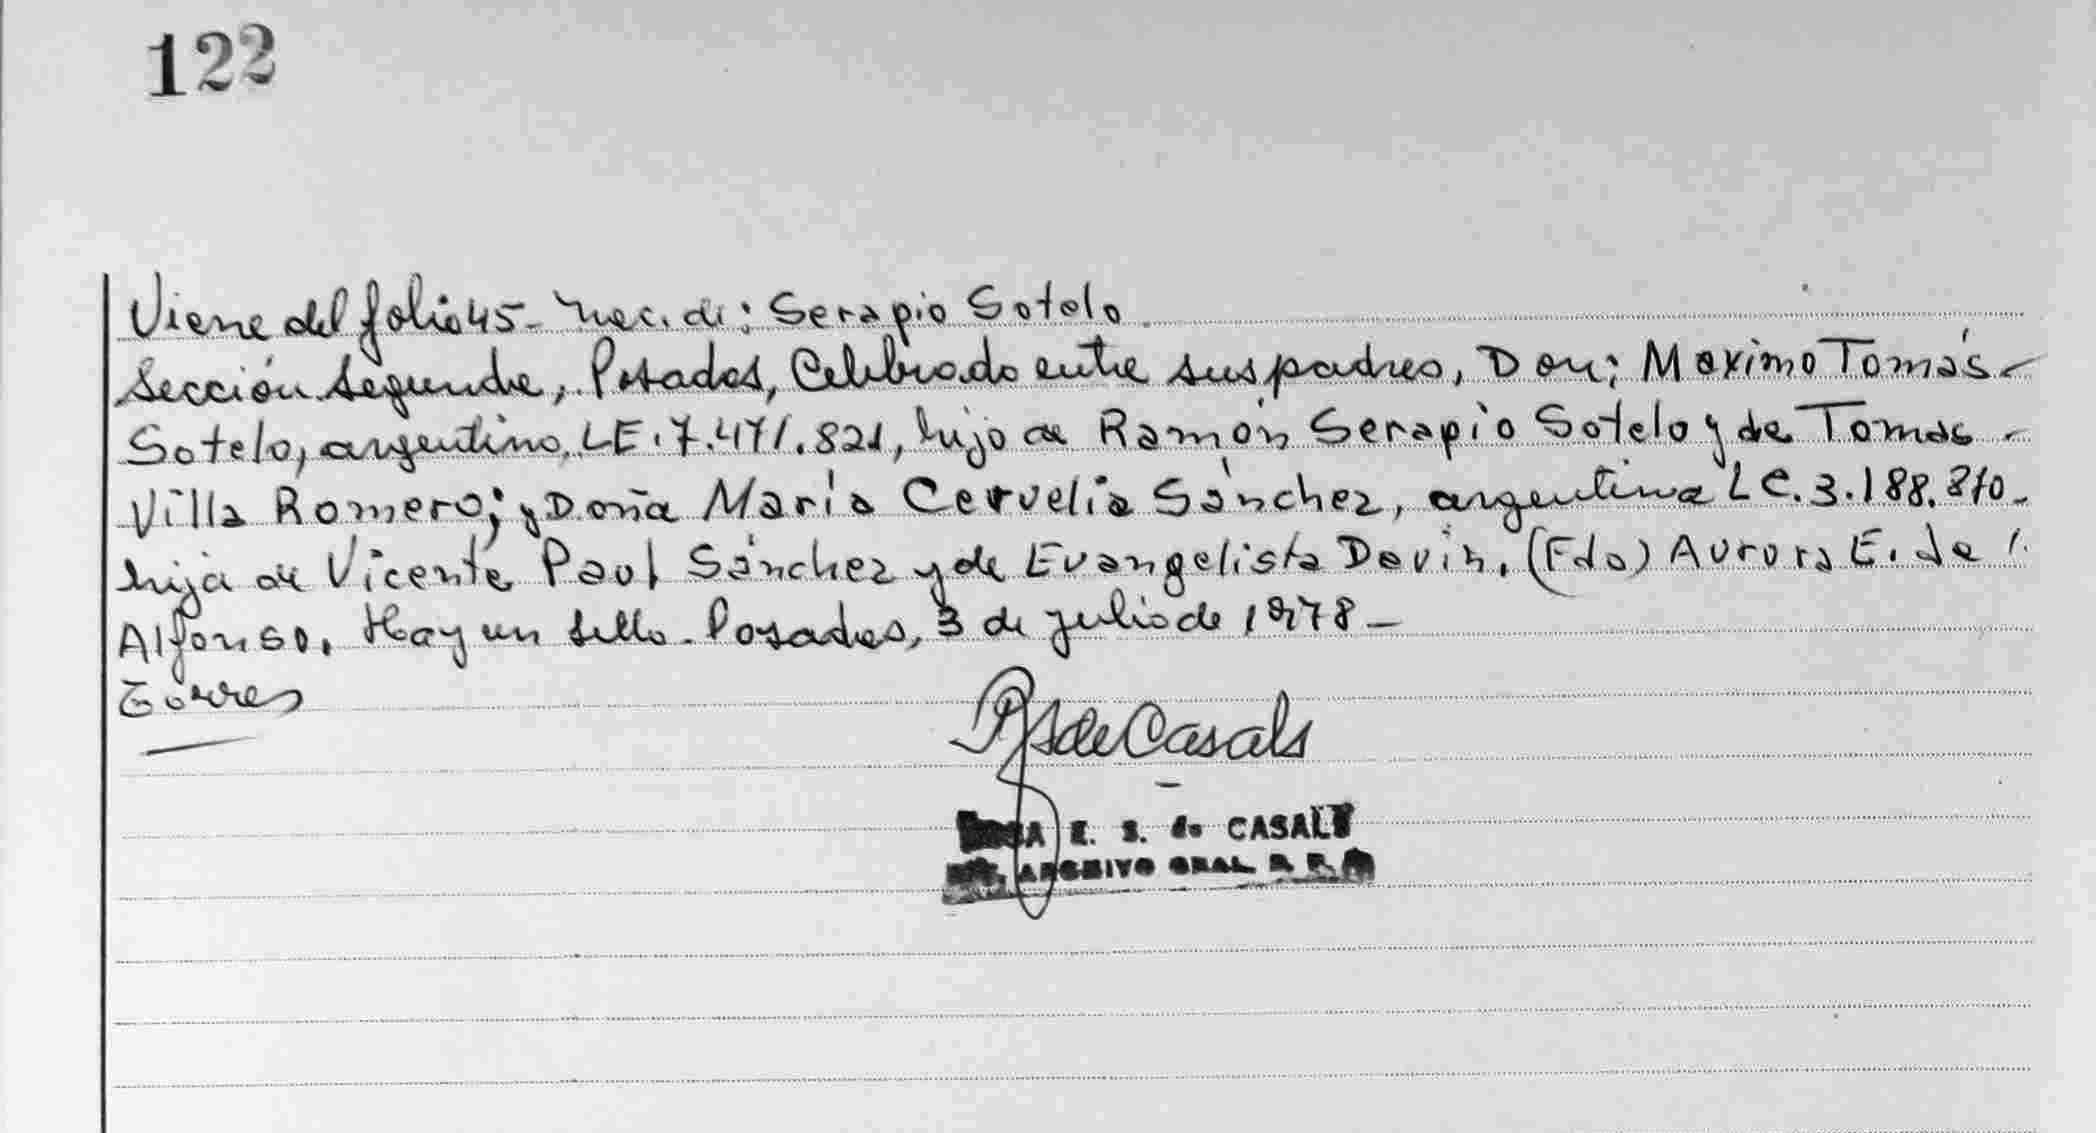 122
Viene del folio 45 - Nac. de: Serapio Sotelo
Sección Segunda, Posadas, Celebrado entre sus padres, Don: Maximo Tomás -
Sotelo, argentino, LE. 7.471.821, hijo de Ramón Serapio Sotelo y de Tomasa -
Villa Romero; y Doña María Cervelia Sánchez, argentina LC. 3.188.870 -
hija de Vicente Paul Sánchez y de Evangelista (Fdo) Aurora E. de
Alfonso. Hay un sello. Posadas, 3 de julio de 1978 -
Torres
de Casals
E. S. de CASALS
ARCHIVO GRAL R. P.